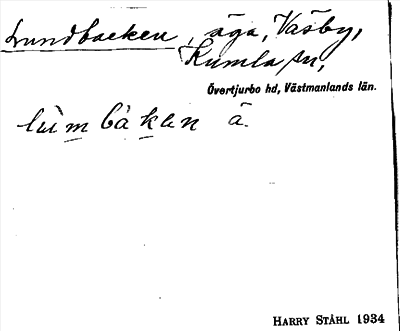 Lundbacken, äga, Vasby,
Kumla sn,
Övertjurbo hd, Västmanlands län.
lùm bàkɐn ä.
HARRY STÅHL 1934